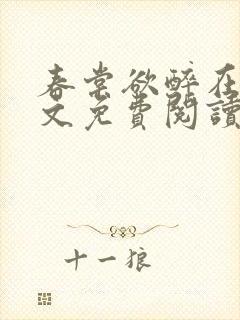 春棠欲醉在
文免費閱讀
十一狼